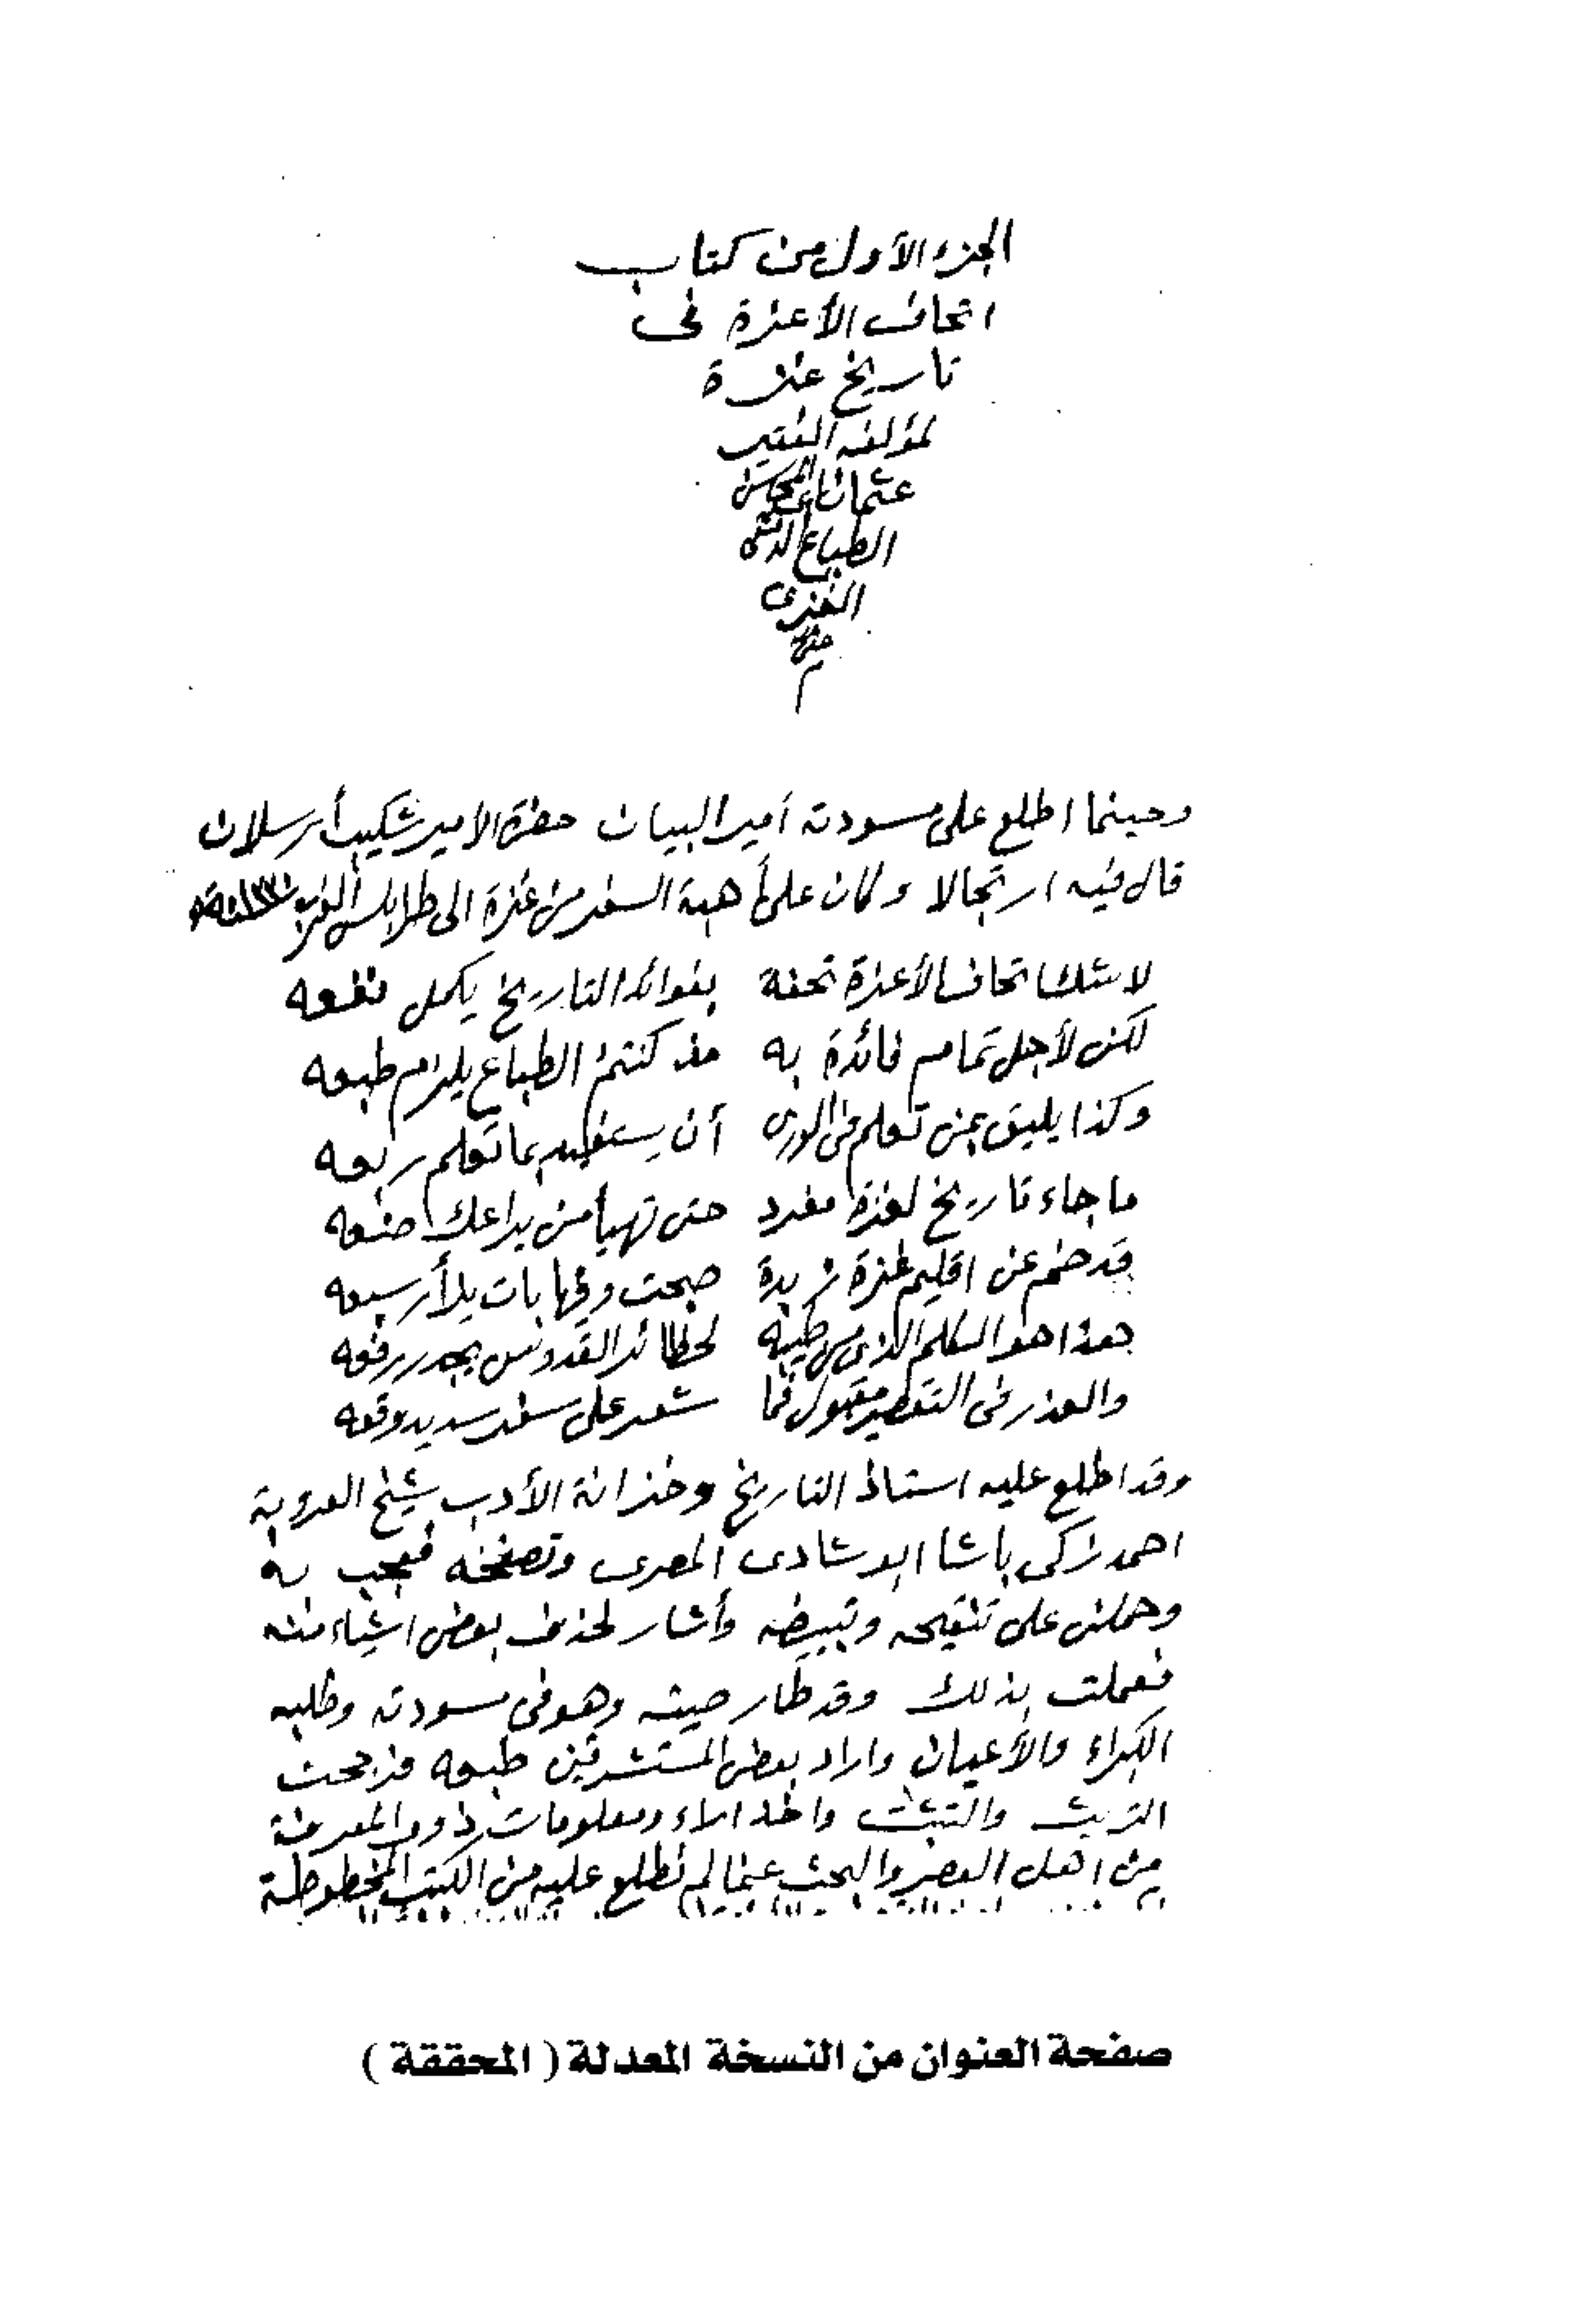 الجزء الأول من كتاب
اتحاف الأعزة في
تاريخ غزة
لمؤلفه الفقير
عثمان
الطباع
الغزى
وحينما اطلع على مسودته أمير البيان حضرة الامير شكيب أرسلان
قال فيه ارتجالا وكان على أهبة السفر من غزة الى طرابلس الغرب
لا شك اتحاف الأعزة تحفة بفوائد التاريخ يكمل نفعه
لكن لأجل تمام فائدة به مذ كنتم الطباع يلزم طبعه
وكذا يليق بمن تعلم في الورى أن يستفيد بما تعلم ربعه
ما جاء تاريخ لغزة مفرد حتى تهيأ من يراعك صنعه
قد ضم عن اقليم غزة زبدة صحت وفيها بات يلأرسبعه
هذا هو الكلم الذي من طيبه لحظائر القدوس يجدر رفعه
والعذر في التقصير مقبول فما شعر على سفر سديد وقعه
وقد اطلع عليه استاذ التاريخ وخزانة الأدب شيخ العروبة
احمد زكى باشا المصرى وتصفحه فعجب به
وحملنى على تنقيحه وتبييضه وأشار لحذف بعض اشياء منه
فعملت بذلك وقد طار صيته وهو في مسودته وطلبه
الكبراء والأعيان واراد بعض المستشرقين طبعه فرجحت
التريث والتثبت واخذ اراء ومعلومات ذاوى المعرفة
من اهل العصر والبحث عما لم نطلع عليه من الكتب المخطوطة
صفحة العنوان من النسخة المعدلة ( المحققة )